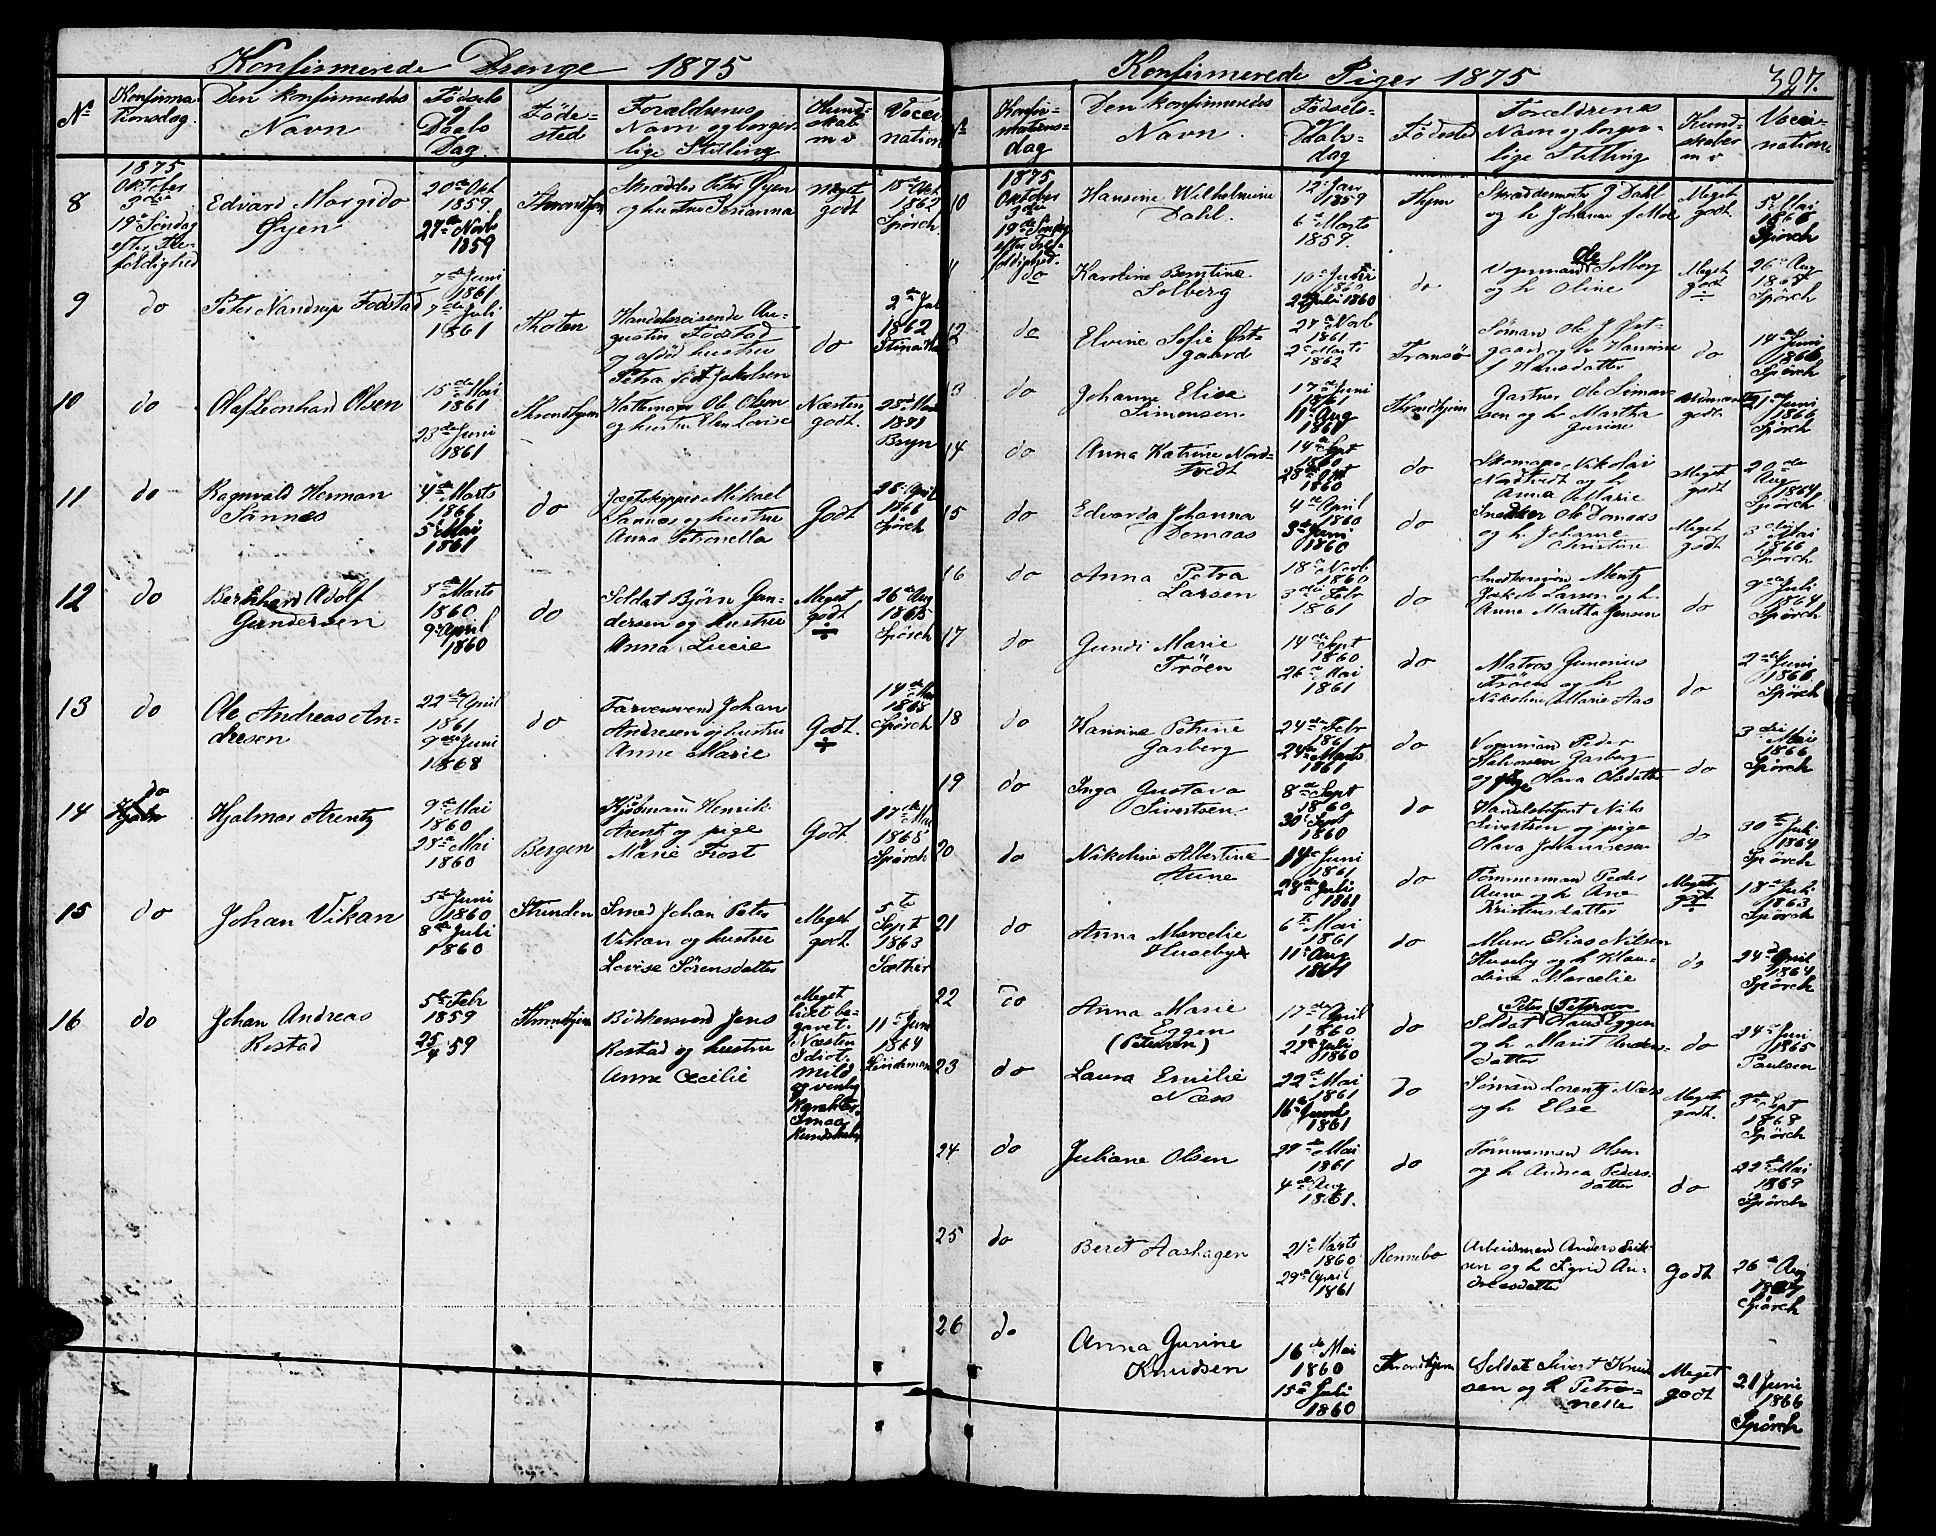 Konfirmerede Drenge 1875
No
Konfirma-
tionsdag.
Den konfirmeredes
Navn
Fødsels
og
Daabs
Dag.
Føde-
sted
Forældrenes
Navn og borger-
lige Stilling
Kund-
skab
m v
Vacci-
nation
1875
Oktober
3die
19de Søndag
efter Tre-
foldighed
8
Edvard Margido
Øyen
20de Okt
1859.
27de Novb
1859
Throndhjem
Skrædder Peter Øyen
og hustru Johanna
Meget
godt
18de Okt
1862
Spörch.
9
do
Peter Nandrup Fodstad
7de Juni
1861
7de Juli
1861
Thoten
Handelsreisende Au-
gustin Fodstad
og afdød hustru
Petra født Jakobsen
do
2den Juli
1862
10
do
Olaf Leonhard Olsen
15de Mai
1861
23de Juni
1861
Throndhjem
Hattemager Ole Olsen
og hustru Elen Lovise
Næsten
godt.
Bryn
11
do
Ragnvald Herman
Sannæs
4de Marts
1866
5te Mai
1861
do
Jægtskipper Mikael
Sannæs og hustru
Anna Petronella
Godt
26de April
1866
Spörch
12
do
Bernhard Adolf
Gundersen
8de Marts
1860
9de April
1860
do
Soldat Bjørn Gun-
dersen og hustru
Anna Lucie
Meget
godt
÷
26de Aug
1868
Spörch
13
do
Ole Andreas An-
dresen
22de April
1861
9de Juni
1868
do
Farversvend Johan
Andresen og hustru
Anne Marie
Godt.
÷
14de Mai
1868
Spörch
14
do
Hjalmar Arentz
9de Mai
1860
28de Mai
1860
Bergen
Kjøbmand Henrik
Arentz og pige
Marie Frost
Godt.
17de Mai
1865
Spörch
15
do
Johan Vikan
5te Juni
1860
8de Juli
1860
Strinden
Smed Johan Peter
Vikan og hustru
Lovise Sørensdatter
Meget
godt.
5te
Sept
1863
Sæther
16
do
Johan Andreas
Restad
5te Febr
1859
25/4 59
Throndhjem
Bødkersvend Jens
Restad og hustru
Anne Cecilie
Meget
lidt be-
gavet.
Næsten
Idiot.
Mild
og venlig
Karakter.
Smaa
Kundskaber
11te Juni
1864
Lindeman
Konfirmerede Piger 1875
327.
No
Konfir-
mations-
dag
Den konfirmeredes
Navn.
Fødsels-
Daabs-
dag
Fødested
Forældrenes
Navn og borger-
lige Stilling
Kund-
skaber
m v
Vacci-
nation.
1875
Oktober
3die
19de Søndag
efter Tre-
foldighed.
10
Hansine Wilhelmine
Dahl.
12te Jan
1859
6te Marts
1859.
Thjem
Skræddermester J Dahl
og h Johanna f Moe
Meget
godt.
5te Mai
1866
Spörch
11
do
Karoline Berntine
Solberg
22 Juli 1860
do
Vognmand Ole Solberg
og h Oline
Meget
godt
÷
26de Aug
1868
Spörch
12
do
Elvine Sofie Øst-
gaard
27de Novb
1861
2de Marts
1862
Tromsø
Sømand Ole J Øst-
gaard og h Hansine
J Hansdatter
do
14de Juni
1866
Spörch
13
do
Johanne Elise
Simonsen.
17de Juni
1861
11te Aug
1861
Throndhjem
Gartner Ole Simon-
sen og h Martha
Gurine
Udmærket
godt.
21de Juni
1866
Spörch
14
do
Anna Katrine Nord-
tvedt
14de Sept
1860
28de Okt
1860
do
Skomager Nikolai
Nordtvedt og h
Anna Marie
Meget
godt
20de
Aug
1864
Spörch
15
do
Edvarda Johanna
Domaas
4de April
1860
3die Juni
1860
do
Snedker Ole Domaas
og h. Johanne
Christine
Meget
godt
3die
Mai
1866
Spörch
16
do
Anna Petra
Larsen
18de Novb
1860
3die Febr
1861
do
Snedkersvend Mentz
Jakob Larsen og h.
Anne Martha Jensen
do
9de Juli
1864
Spörch
17
do
Gundi Marie
Trøen
14de Sept
1860
26de Mai
1861
do
Matros Gunerius
Trøen og h
Nikoline Marie Aas
do
2den Juni
1866
Spörch
18
do
Hannine Petrine
Gasberg
24de Febr
1861
24de Marts
1861
do
Vognmand Peder
Halvorsen Gasberg
og pige Olava Olsdatter
do
3die
Mai
1866
Spörch
19
do
Inga Gustava
Sivertsen.
8de Sept
1860
30te Sept
1860
do
Handelsbetjent Nils
Sivertsen og pige
Olava Johannesen
do
30te Juli
1864
Spörch
20
do
Nikoline Albertine
Aune
14de Juni
1861
28de Juli
1861
do
Tømmermand Peder
Aune og h Ane
Kristensdatter
Meget
godt
÷
18de Juli
1863
Spörch
21
do
Anna Marcelie
Huseby
6te Mai
1861
11te Aug
1861
do
Murer Elias Nilsen
Huseby og h Klau-
dine Marcelie
do
24de April
1864
Spörch
22
do
Anna Marie
Eggen
(Petersen)
17de April
1860
22de Juli
1860
do
Peter (Petersen
Soldat Eggen
og h Marit Anders-
datter
do
24de Juni
1865
Paulsen
23
do
Laura Emilie
Næss
22de Mai
1861
16de Juni
1861
do
Sømand Lorentz Næss
og h Else
Meget
godt.
9de Sept
1868
Spörch
24
do
Juliane Olsen
29de Mai
1861
4de Aug
1861.
do
Tømmermand Olsen
og h Andrea Peders-
datter
do
22de Mai
1869
Spörch
25
do
Beret Aashagen
21de Marts
1860
29de April
1861
Rennebo
Arbeidsmand Anders Erik-
sen og h Sigrid An-
dreasdatter
Godt
26de Aug
Spörch
26
do
Anna Gurine
Knudsen
16de Mai
1860
15de Juli
1860
Throndhjem
Soldat Sivert Knud-
sen og h Petro-
nelle
Meget
godt
21 Juni
1866
Spörch